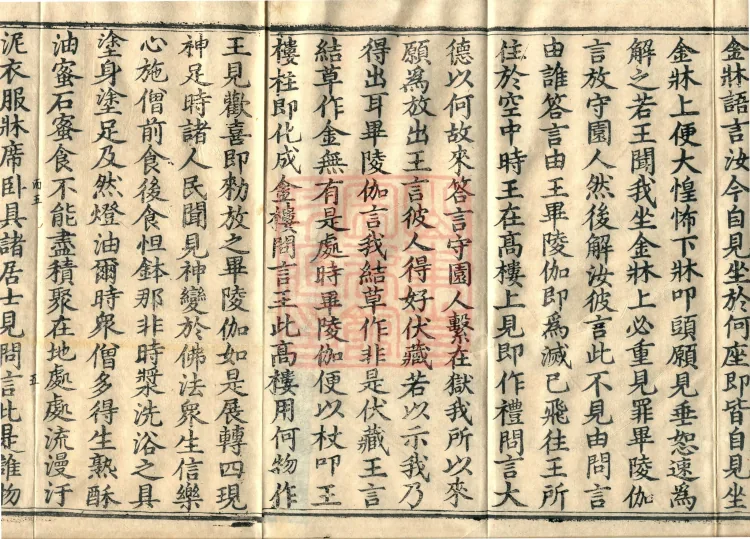 金牀語言汝今自見坐於何座即皆自見坐
金牀上便大惶怖下牀叩頭願見垂恕速為
解之若王聞我坐金牀上必重見罪畢陵伽
言放守園人然後解汝彼言此不見由問言
由誰答言由王畢陵伽即為滅已飛往王所
住於空中時王在髙樓上見即作禮問言大
德以何故來答言守園人繫在獄我所以來
願為放出王言彼人得好伏藏若以示我乃
得出耳畢陵伽言我結草作非是伏藏王言
結草作金無有是處時畢陵伽便以杖叩王
樓柱即化成金樓問言王此髙樓用何物作
王見歡喜即勑放之畢陵伽如是展轉四現
神足時諸人民聞見神變於佛法衆生信樂
心施僧前食後食怛鉢那非時漿洗浴之具
塗身塗足及然燈油爾時衆僧多得生熟酥
油蜜石蜜食不能盡積聚在地處處流漫汙
泥衣服牀席卧具諸居士見問言此是誰物